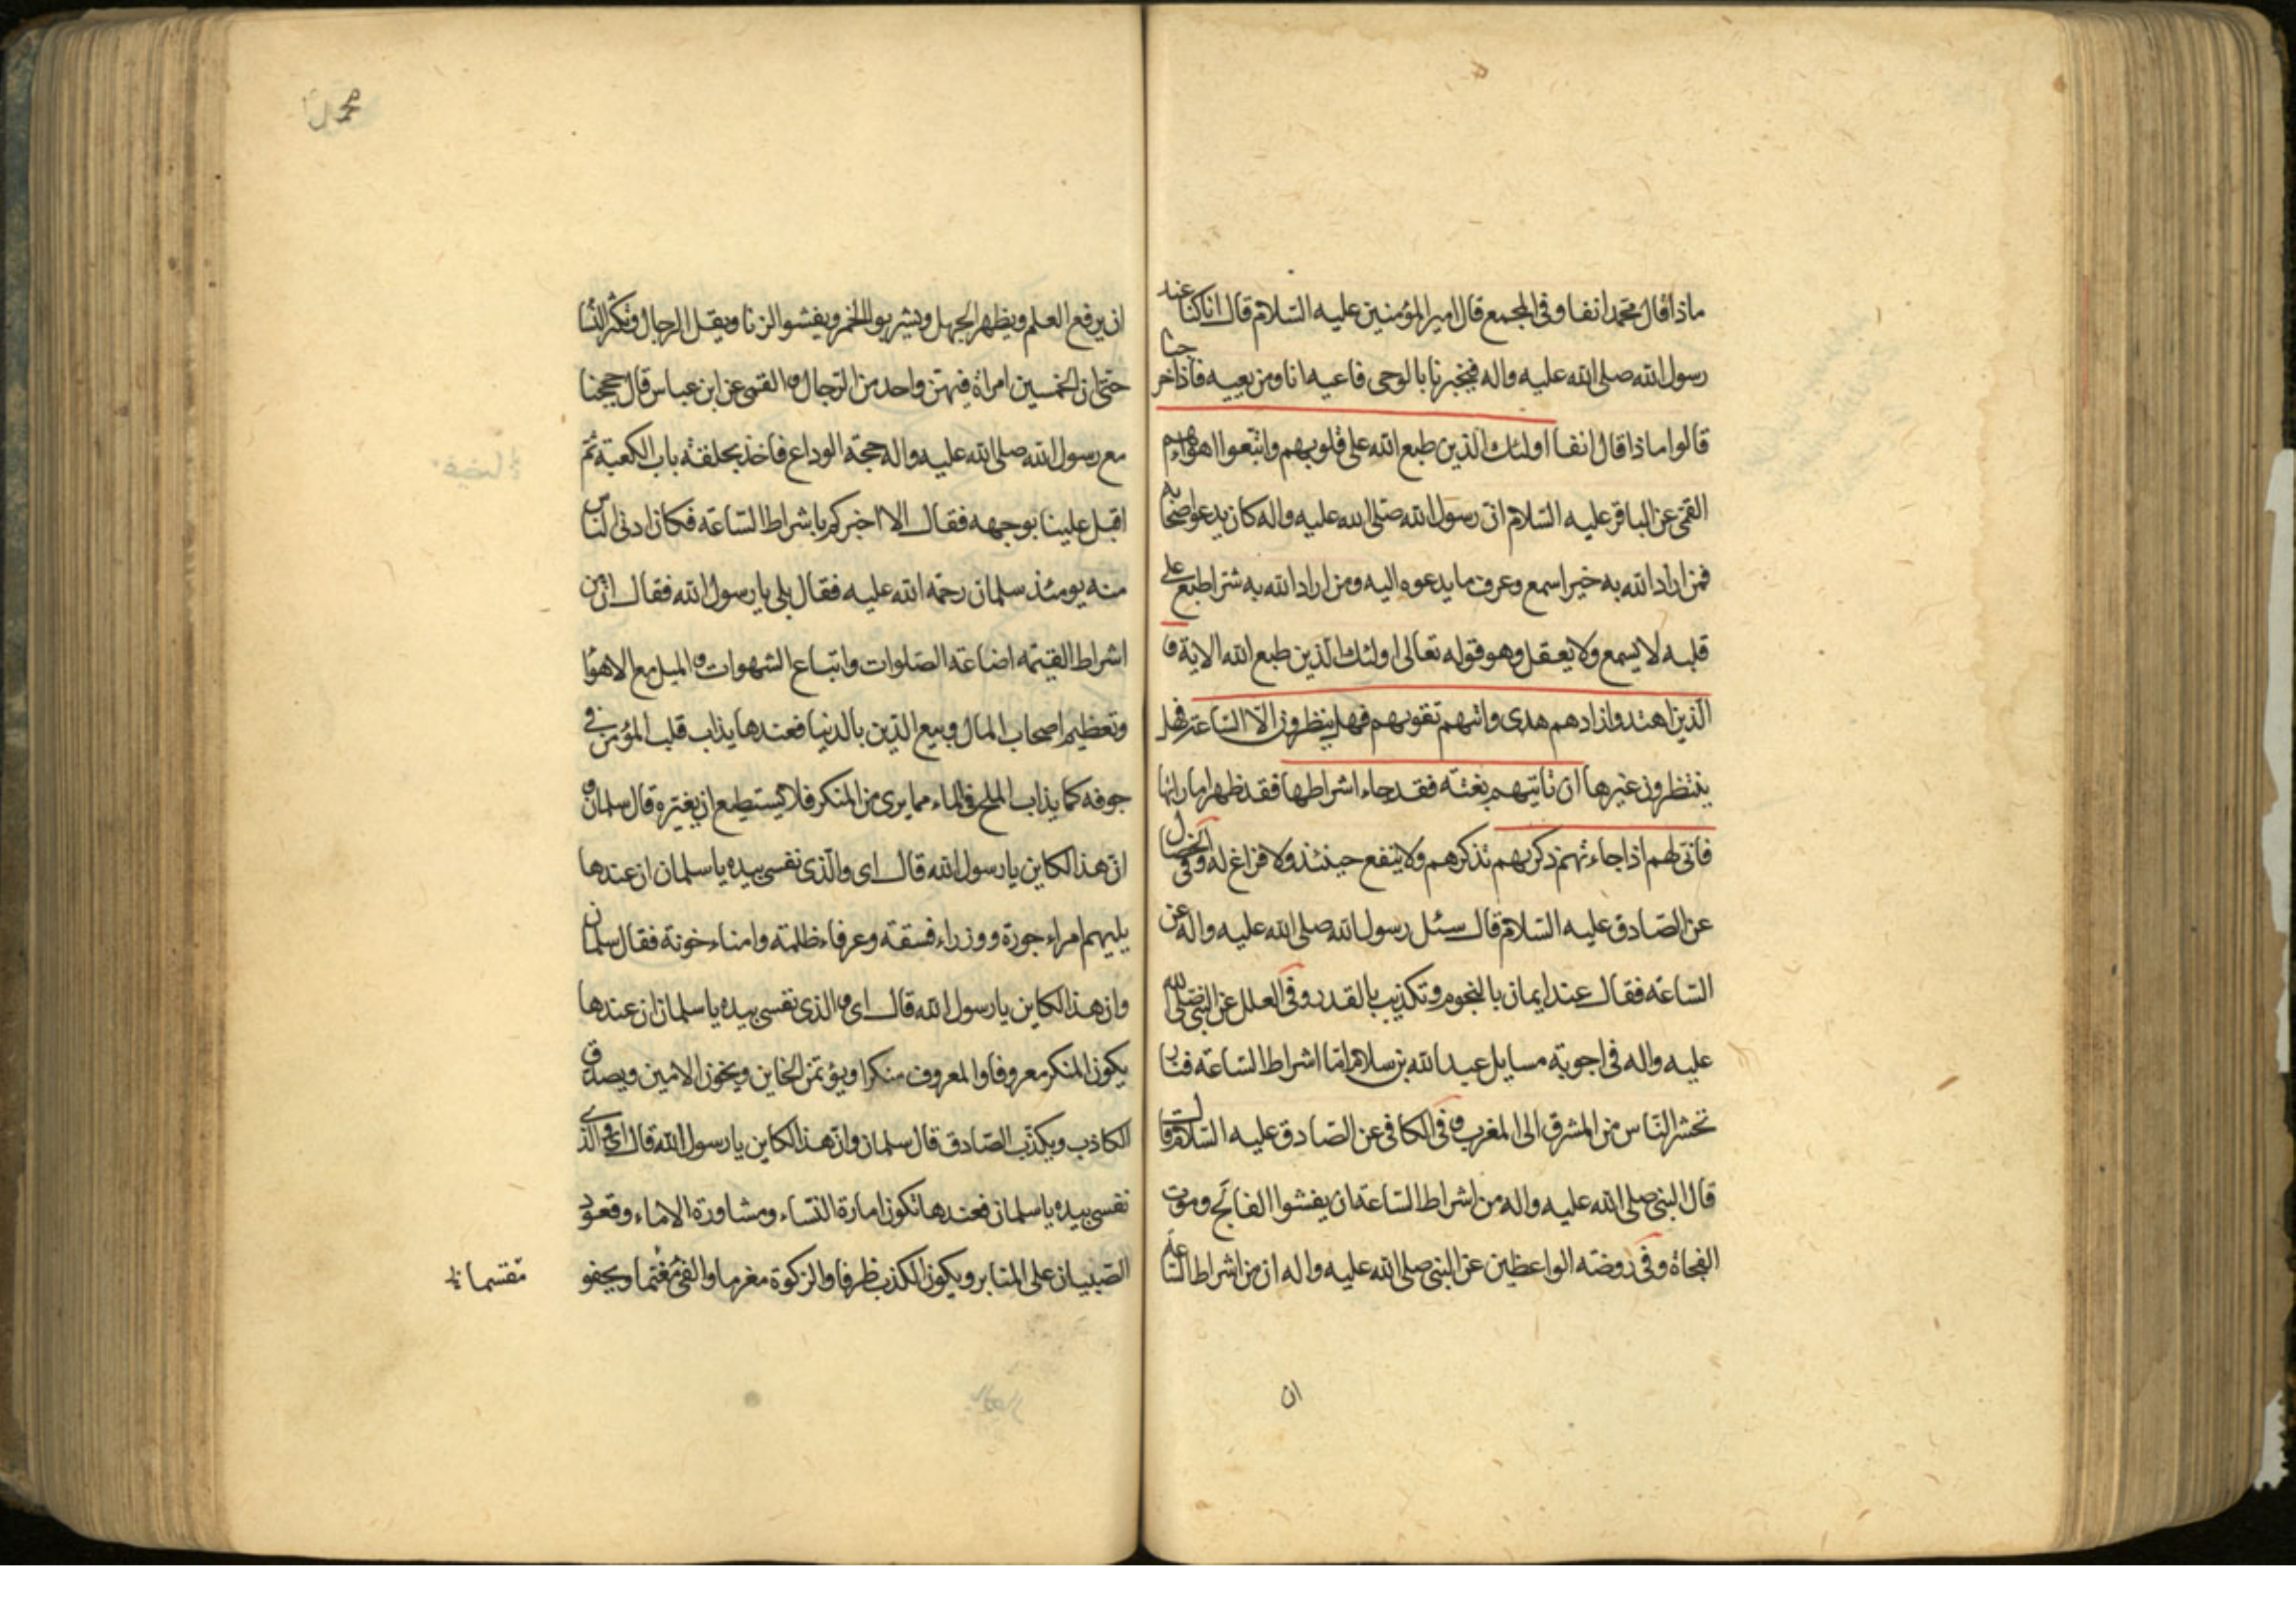 ماذا قال محمد انفا وفى المجمع قال امير المؤمنين عليه السلام قال انا كنا عند
رسول الله صلى الله عليه واله فيخبرنا بالوحى فاعيه انا ومن يعيه فاذا خرجنا
قالوا ماذا قال انفا اولئك الذين طبع الله على قلوبهم واتبعوا اهواءهم
القمى عن الباقر عليه السلام ان رسول الله صلى الله عليه واله كان يدعو اصحابه
فمن اراد الله به خيرا سمع وعرف ما يدعوه اليه ومن اراد الله به شرا طبع على
قلبه لا يسمع ولا يعقل وهو قوله تعالى اولئك الذين طبع الله الاية و
الذين اهتدوا زادهم هدى واتيهم تقويهم فهل ينظرون الا الساعة فهل
ينتظرون غيرها ان تاتيهم بغتة فقد جاء اشراطها فقد ظهر اماراتها
فانى لهم اذا جاءتهم ذكريهم تذكرهم ولا ينفع حينئذ ولا فراغ له وفى الخصال
عن الصادق عليه السلام قال سئل رسول الله صلى الله عليه واله عن
الساعة فقال عند ايمان بالنجوم وتكذيب بالقدر وفى العلل عن النبى صلى الله
عليه واله فى اجوبة مسايل عبد الله بن سلام اما اشراط الساعة فنار
تحشر الناس من المشرق الى المغرب وفى الكافى عن الصادق عليه السلام قال
قال النبى صلى الله عليه واله من اشراط الساعة ان يفشوا الفالج وموت
الفجاة وفى روضة الواعظين عن النبى صلى الله عليه واله ان من اشراط الساعة
ان يرفع العلم ويظهر الجهل ويشربوا الخمر ويفشوا الزنا ويقل الرجال وتكثر النسا
حتى ان الخمسين امراة فيهن واحد من الرجال و القمى عن ابن عباس قال حججنا
مع رسول الله صلى الله عليه واله حجة الوداع فاخذ بحلقة باب الكعبة ثم
اقبل علينا بوجهه فقال الا اخبركم باشراط الساعة فكان ادنى الناس
منه يومئذ سلمان رحمة الله عليه فقال بلى يا رسول الله فقال ان من
اشراط القيمة اضاعة الصلوات واتباع الشهوات و الميل مع الاهوا
وتعظيم اصحاب المال وبيع الدين بالدنيا فعندها يذاب قلب المؤمن فى
جوفه كما يذاب الملح فى الماء مما يرى من المنكر فلا يستطيع ان يغيره قال سلمان و
ان هذا لكاين يا رسول الله قال اى والذى نفسى بيده يا سلمان ان عندها
يليهم امراء جورة ووزراء فسقة وعرفاء ظلمة وامناء خونة فقال سلمان
وان هذا لكاين يا رسول الله قال اى و الذى نفسى بيده يا سلمان ان عندها
يكون المنكر معروفا والمعروف منكرا ويؤتمن الخاين ويخون الامين ويصدق
الكاذب ويكذب الصادق قال سلمان وان هذا لكاين يا رسول الله قال اى والذى
نفسى بيده يا سلمان فعندها تكون امارة النساء ومشاورة الاماء وقعود
الصبيان على المنابر ويكون الكذب ظرفا والزكوة مغرما والفئ مغنما ويجفو